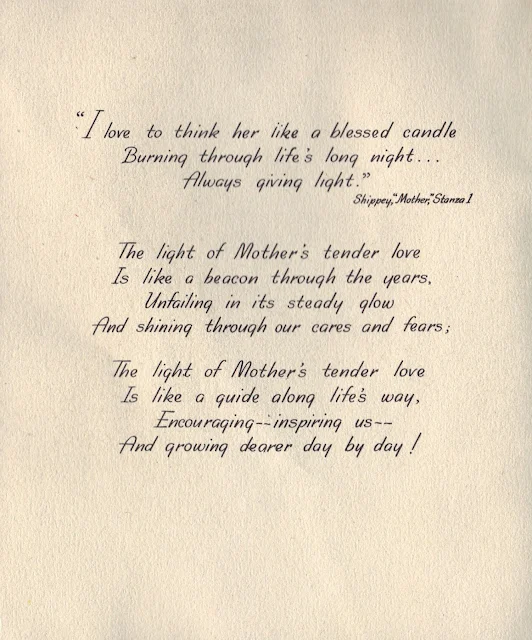 “I love to think her like a blessed candle
Burning through life's long night...
Always giving light.”
Shippey,“Mother,”Stanza 1
The light of Mother's tender love
Is like a beacon through the years,
Unfailing in its steady glow
And shining through our cares and fears;
The light of Mother's tender love
Is like a guide along life's way,
Encouraging--inspiring us--
And growing dearer day by day!